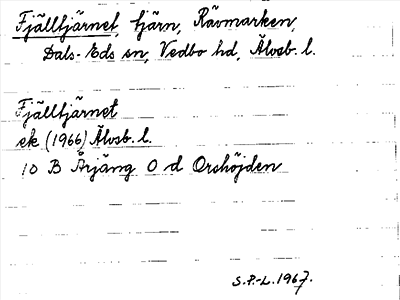 Fjälltjärnet, tjärn, Rävmarken,
Dals-Eds sn, Vedbo hd, Älvsb. l.
Fjälltjärnet
ek (1966) Älvsb. l.
10 B Årjäng O d Orshöjden
S.P.-L. 1967.